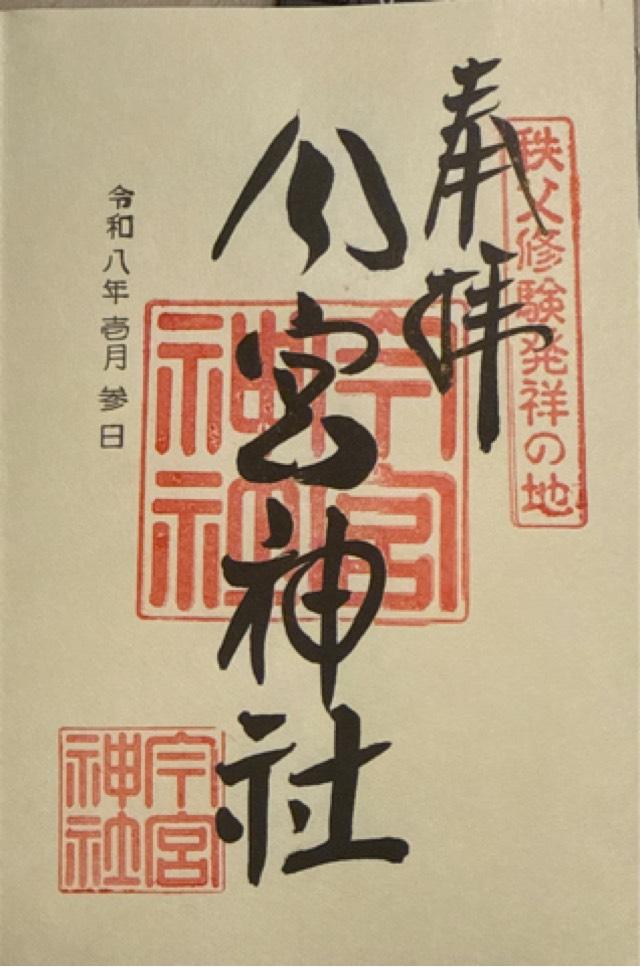 秩父修験発祥の地
奉拝
今宮神社
今宮
神社
令和八年壱月参日
今宮
神社